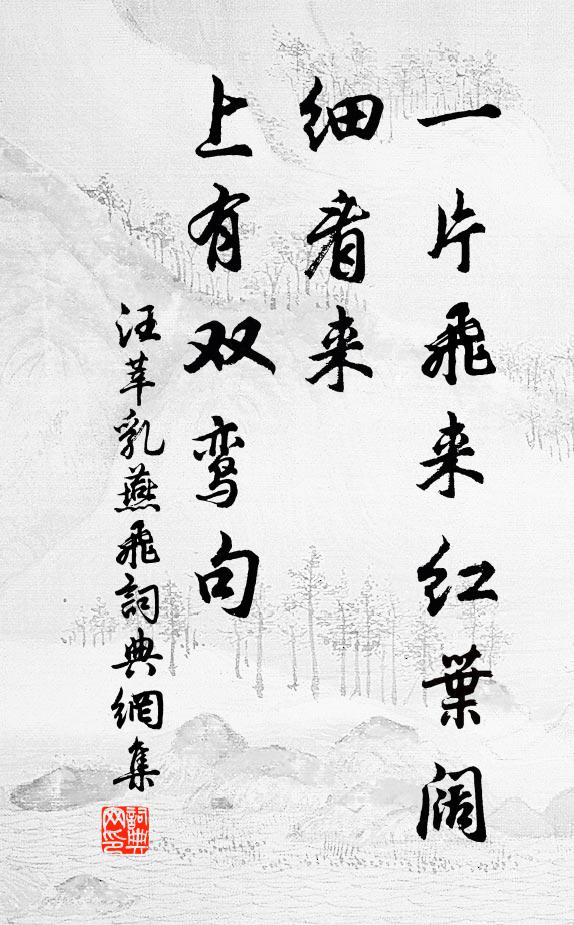 一片飛来红葉阔
细看来
上有双鸾句
汪莘乳燕飛詞典網集
詞典
网印